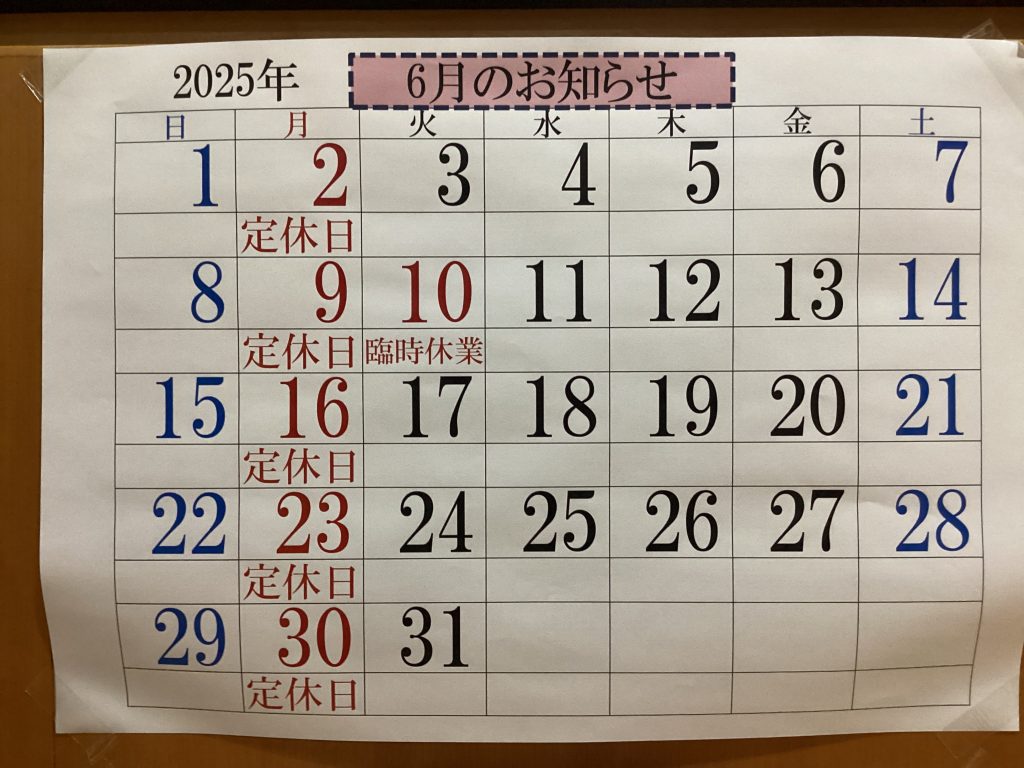 2025年 6月のお知らせ
日 月 火 水 木 金 土
1 2 3 4 5 6 7
定休日
8 9 10 11 12 13 14
定休日 臨時休業
15 16 17 18 19 20 21
定休日
22 23 24 25 26 27 28
定休日
29 30 31
定休日